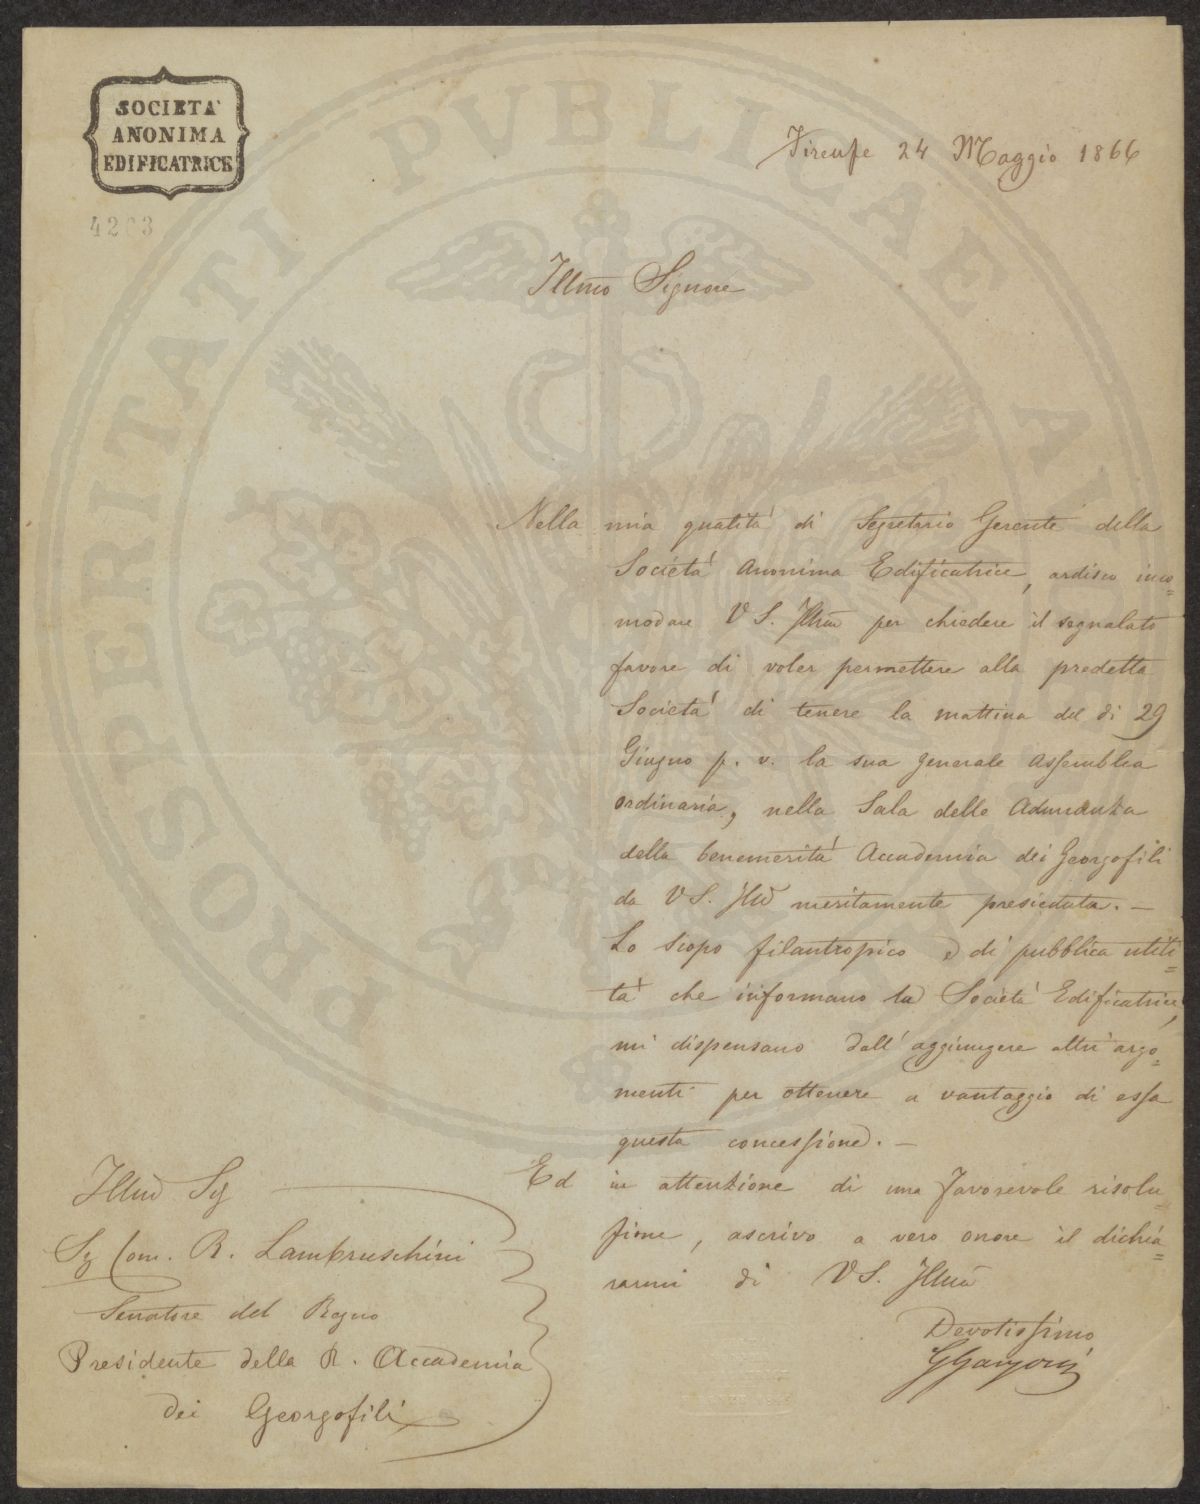 SOCIETA'
ANONIMA
EDIFICATRICE
4263
Firenze 24 Maggio 1866
Illmo Signore
Nella mia qualità di Segretario Gerente della
Società Anonima Edificatrice, ardisco inco=
modare V S. Illma per chiedere il segnalato
favore di voler permettere alla predetta
Società di tenere la mattina del dì 29
Giugno p. v. la sua generale Assemblea
ordinaria, nella Sala delle Adunanza
della benemerità Accademia dei Georgofili
da V S. Illma meritamente presieduta. —
Lo scopo filantropico e di pubblica utili=
tà che informano la Società Edificatrice,
mi dispensano dall'aggiungere altri argo=
menti per ottenere a vantaggio di essa
questa concessione. —
Ed in attenzione di una favorevole risolu=
zione, ascrivo a vero onore il dichia=
rarmi di V S. Illma
Devotissimo
Illmo Sig
Sig Com. R. Lambruschini
Senatore del Regno
Presidente della R. Accademia
dei Georgofili
PROSPERITATI PVBLICAE